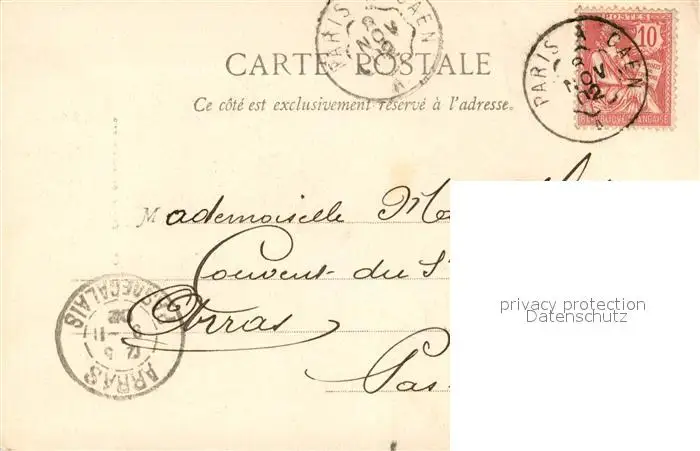 PARIS A CAEN
CARTE POSTALE
Ce côté est exclusivement réservé à l'adresse.
POSTES
10
RÉPUBLIQUE FRANÇAISE
PARIS A CAEN
NOV
02
Mademoiselle
Couvent du S
Arras
Pas
PAS-DE-CALAIS
ARRAS
privacy protection
Datenschutz